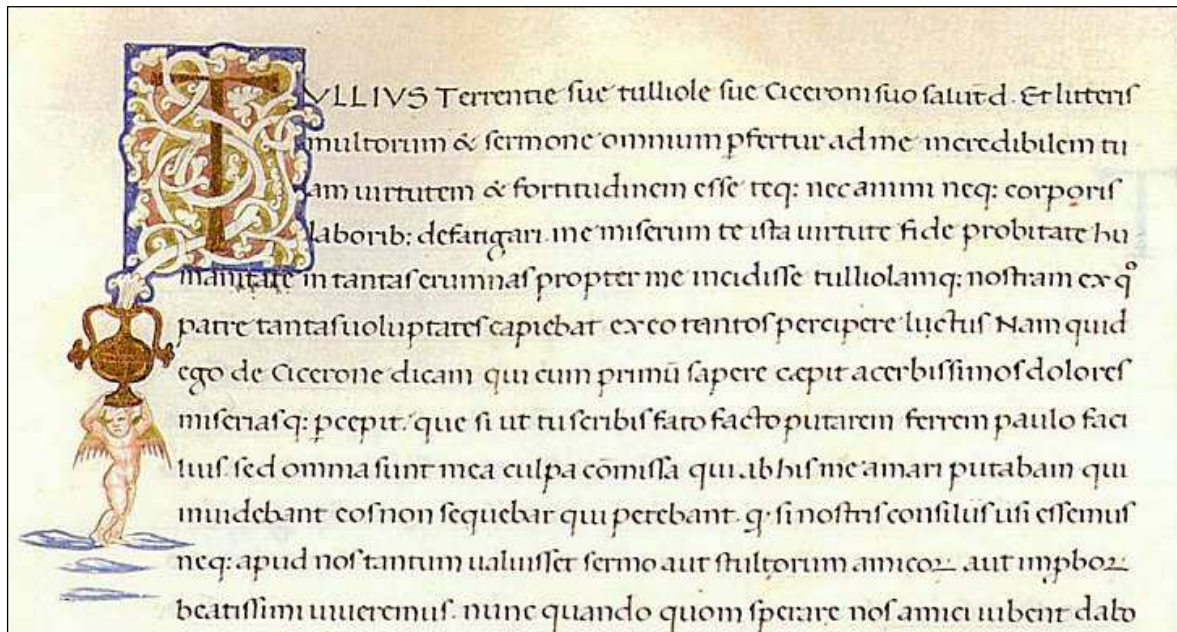 TULLIVS Terrentie sue tulliole sue Ciceroni suo salut̄ d. Et litteris
multorum & sermone omnium p̲fertur ad me incredibilem tu
am uirtutem & fortitudinem esse teq: nec animi neq: corporis
laborib: defatigari. me miserum te ista uirtute fide probitate hu
manitate in tantas erumnas propter me incidisse tulliolamq: nostram ex qͦ
patre tantas uoluptates capiebat ex eo tantos percipere luctus Nam quid
ego de Cicerone dicam qui cum primū sapere cæpit acerbissimos dolores
miseriasq: p̲cepit. que si ut tu scribis fato facto putarem ferrem paulo faci
lius. sed omnia sunt mea culpa cōmissa qui ab his me amari putabam qui
inuidebant eos non sequebar qui petebant. q. si nostris consiliis usi essemus
neq: apud nos tantum ualuisset sermo aut stultorum amicoꝝ aut imp̲boꝝ
beatissimi uiueremus. nunc quando quom sperare nos amici iubent dabo